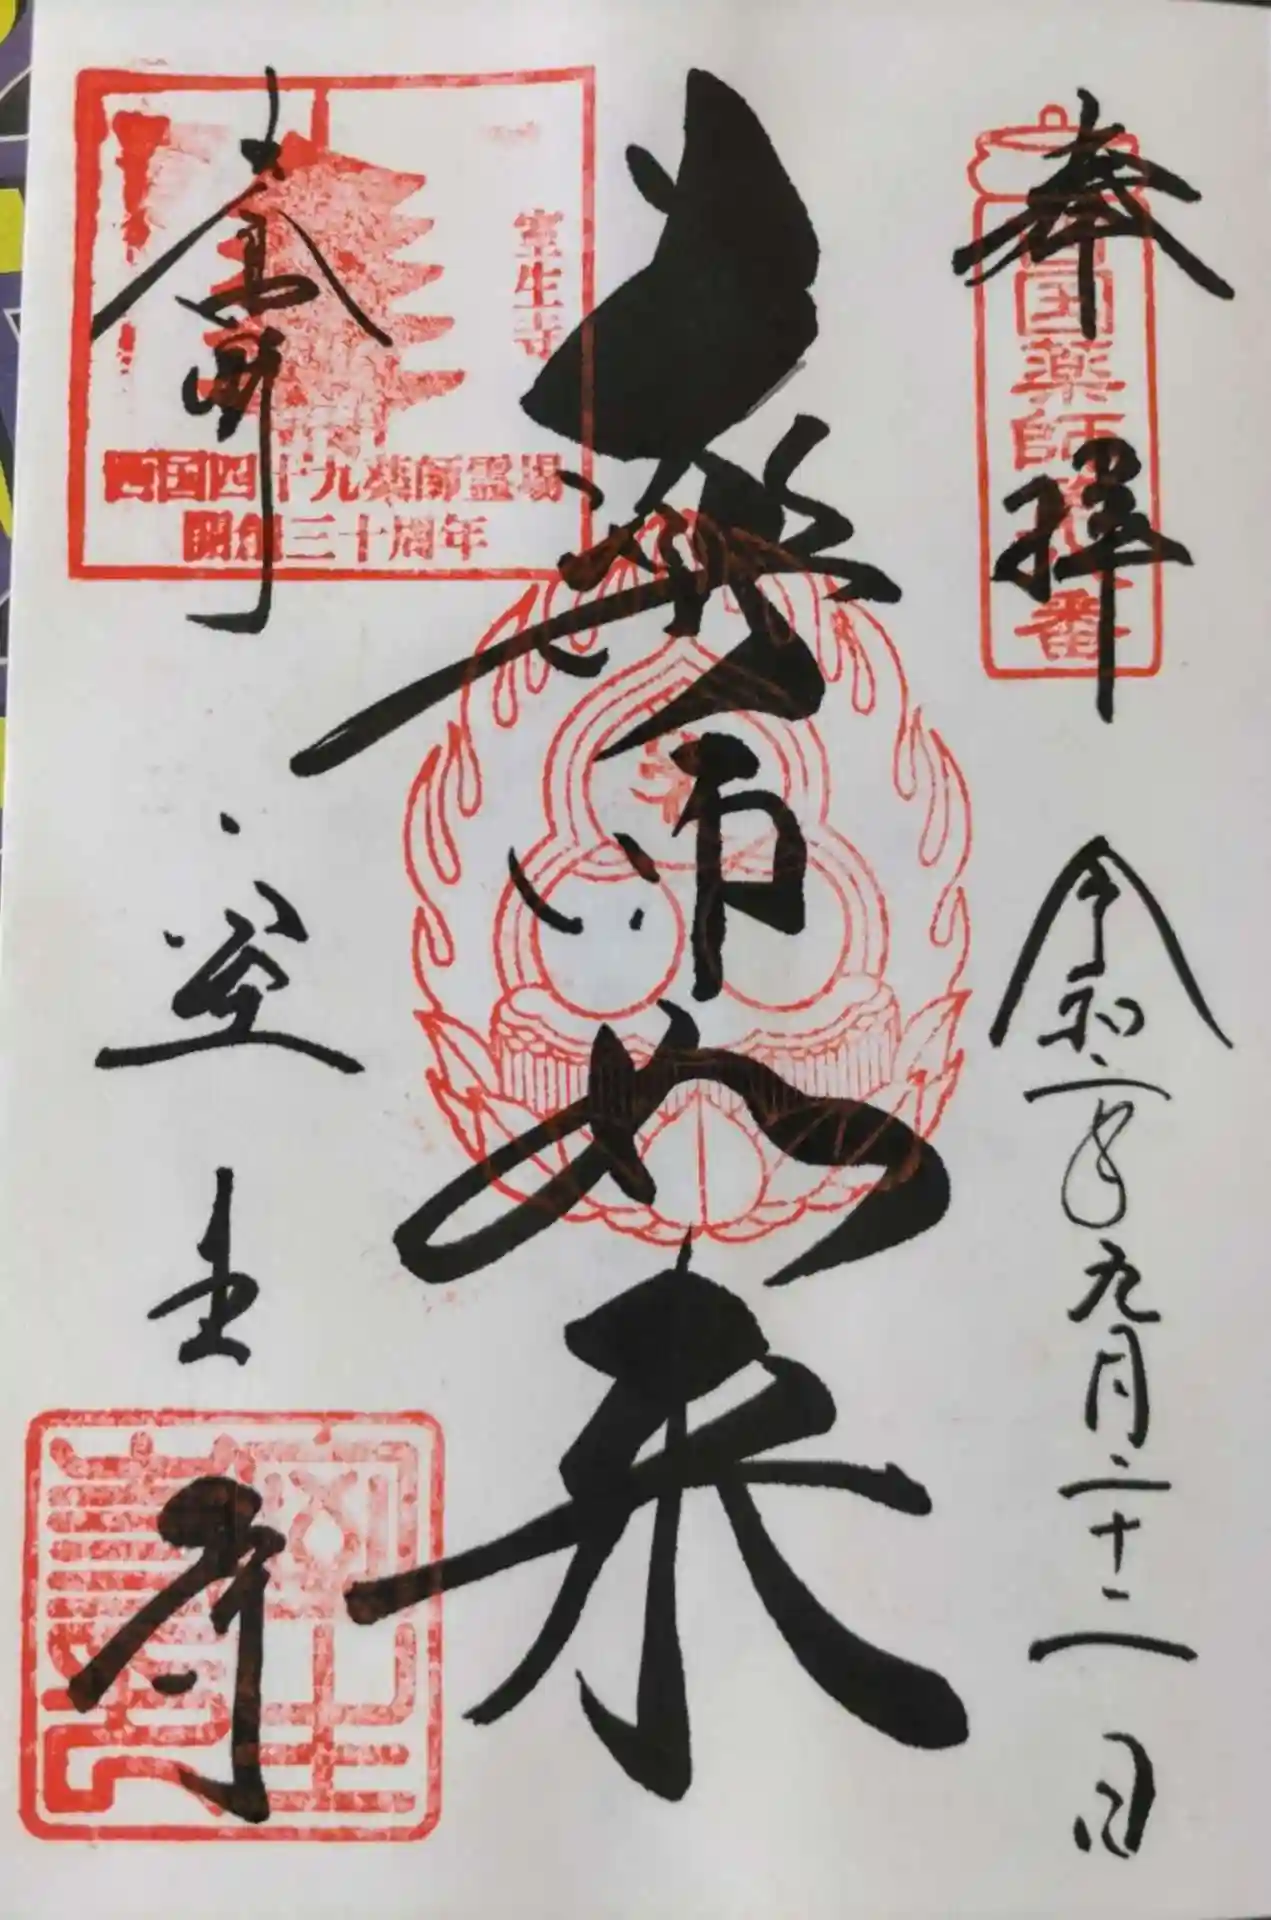 奉拝
令和二年九月二十二日
国薬師
番
薬師如来
女人高野
室生寺
室生寺
西国四十九薬師霊場
開創三十周年